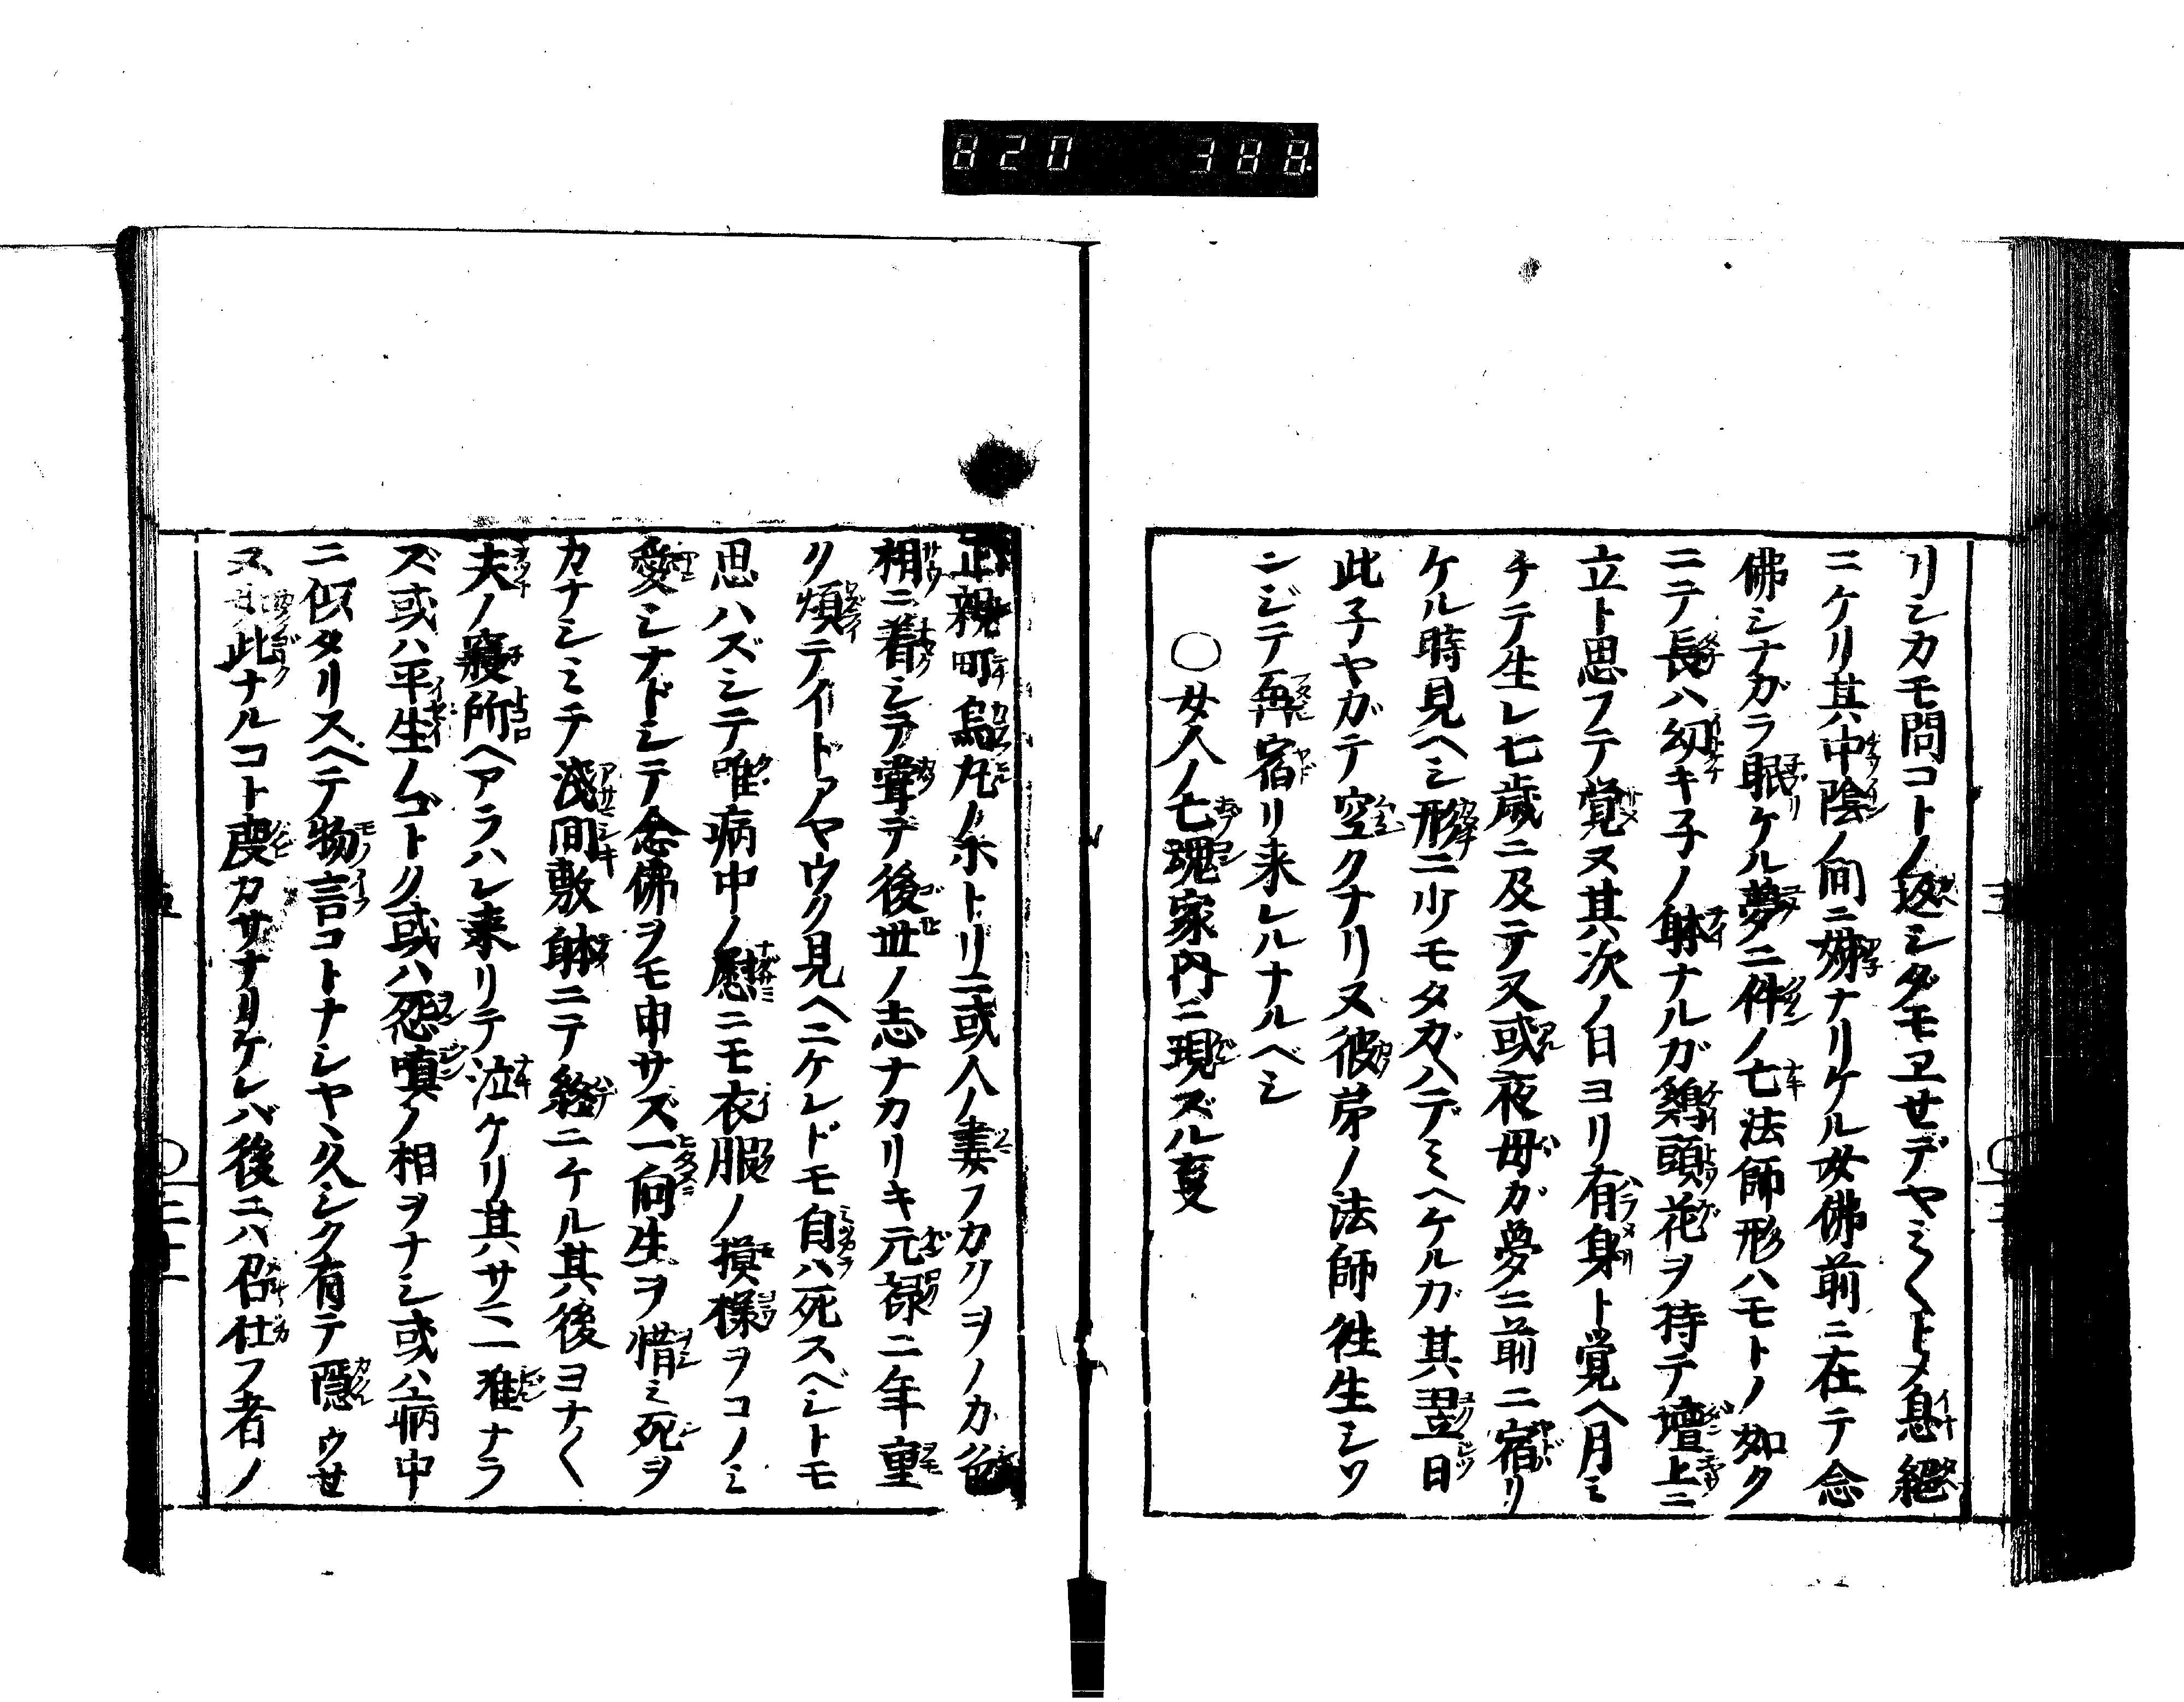 リシカモ問コトノ返シダモヱせデヤミ〱トメ息繼
ニケリ其中陰ノ間ニ娣ナリケル女佛前ニ在テ念
佛シナガラ眠ケル夢ニ件ノ亡法師形ハモトノ如ク
ニテ長ハ幼キ子ノ躰ナルガ鷄頭花ヲ持テ壇上ニ
立ト思フテ覚ヌ其次ノ日ヨリ有身ト覚ヘ月ミ
チテ生レ七歳ニ及テ又或夜母ガ夢ニ前ニ宿リ
ケル時見ヘシ形ニ少モタガハデミヘケルガ其翌日
此子ヤガテ空クナリヌ彼弟ノ法師往生シソ
ンジテ再宿リ来レルナルベシ
〇女人ノ亡魂家内ニ現ズル事
正親町烏丸ノ余トリニ或人ノ妻フカクヲノカ色
相ニ着シテ聾デ後世ノ志ナカリキ元禄二年重
ク煩テイトアヤウク見ヘニケレドモ自ハ死スベシトモ
思ハズシテ唯病中ノ慰ニモ衣服ノ摸樣ヲコノミ
愛シナドシテ念佛ヲモ申サズ一向生ヲ惜ミ死ヲ
カナシミテ浅間敷躰ニテ終ニケル其後ヨナ〱
夫ノ寢所ヘアラハレ来リテ泣ケリ其サマ一准ナラ
ズ或ハ平生ノゴトク或ハ怨嗔ノ相ヲナシ或ハ病中
ニ似タリスベテ物言コトナシヤヽ久シク有テ隱ウせ
ヌ此ナルコト度カサナリケレバ後ニハ召仕フ者ノ
820 388